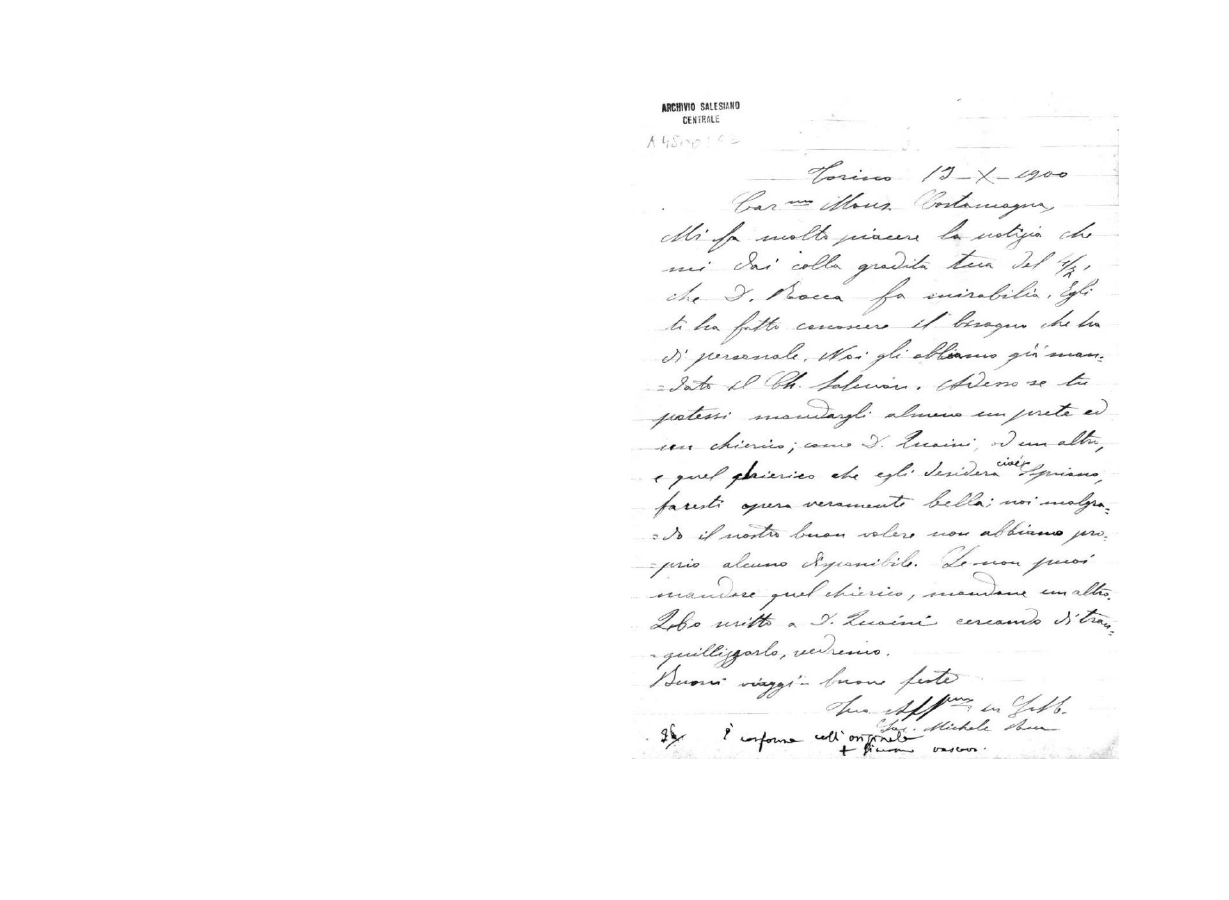 ARCHIVIO SALESIANO
CENTRALE
Torino 13-X-1900
Car.mo Mons. Costamagna,
Mi fa molto piacere la notizia che
mi dai colla gradita tua del
che D. Rocca fa mirabilia. Egli
ti ha fatto conoscere il bisogno che ha
di personale. Noi gli abbiamo già man=
=dato il Ch. Adesso se tu
potessi mandargli almeno un prete ed
un chierico; come D. Quaini, od un altro,
e quel chierico che egli desidera cioè
faresti opera veramente bella; noi malgra=
=do il nostro buon volere non abbiamo pro=
=prio alcuno disponibile. Se non puoi
mandare quel chierico, mandane un altro.
Ho scritto a D. Quaini cercando di tran=
=quillizzarlo, vedremo.
Buoni viaggi - buone feste
Tuo Aff.mo in G. e M.
Sac. Michele Rua
È conforme coll'originale
+ Giacomo vescovo.